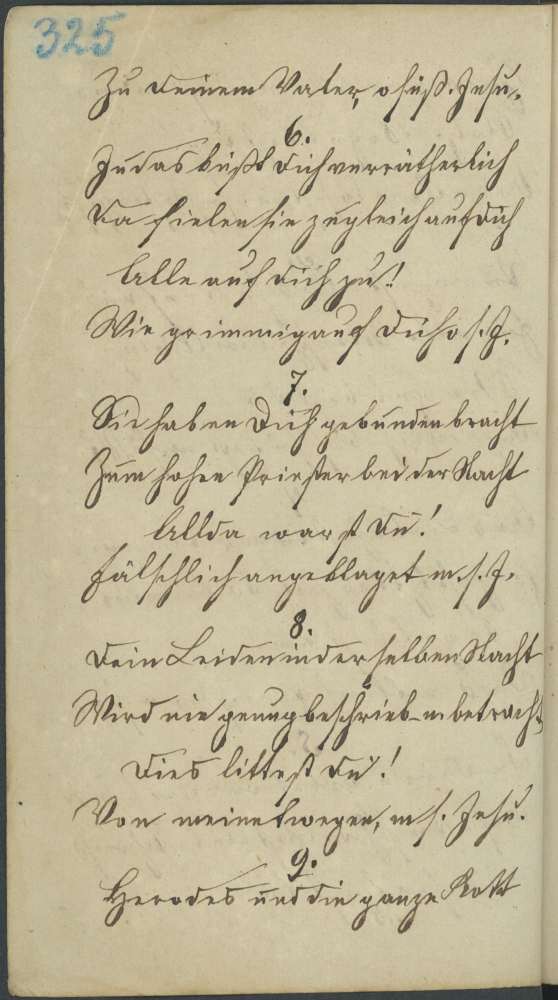 325
Zu deinem Vater, o süß. Jesu.
6.
Judas küßt dich verrätherlich
Da fielen sie zugleich auf dich
Alle auf dich zu!
Wie grimmig auf dich o s. J.
7.
Sie haben Dich gebunden bracht
Zum hohen Priester bei der Nacht
Allda warst du!
Fälschlich angeklaget m. s. J.
8.
Dein Leiden in derselben Nacht
Wird nie genug beschrieb- n betracht
Dies littest du!
Von meinetwegen, m s. Jesu.
9.
Herodes und die ganze Rott